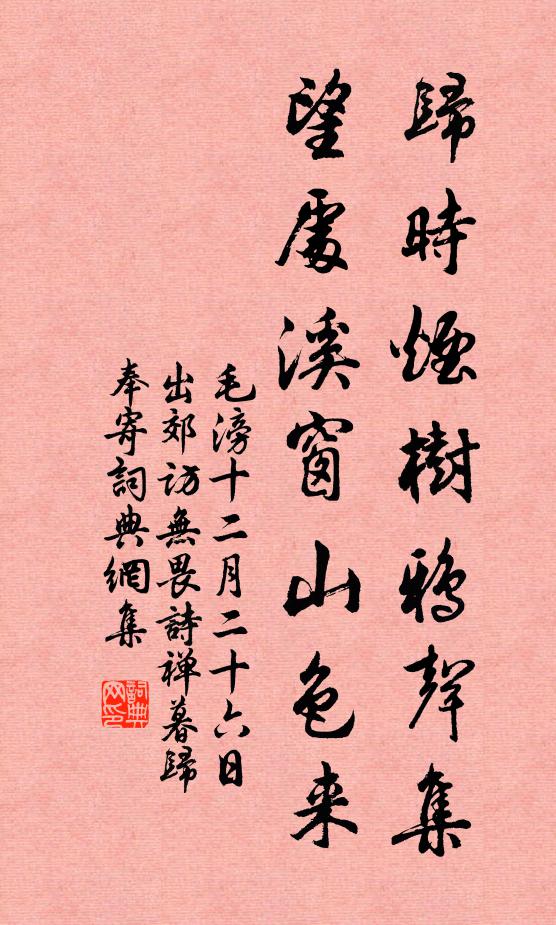 歸時煙樹鴉聲集
望處溪窗山色来
毛滂十二月二十六日
出郊訪無畏詩禅暮歸
奉寄詞典網集
詞典
网印